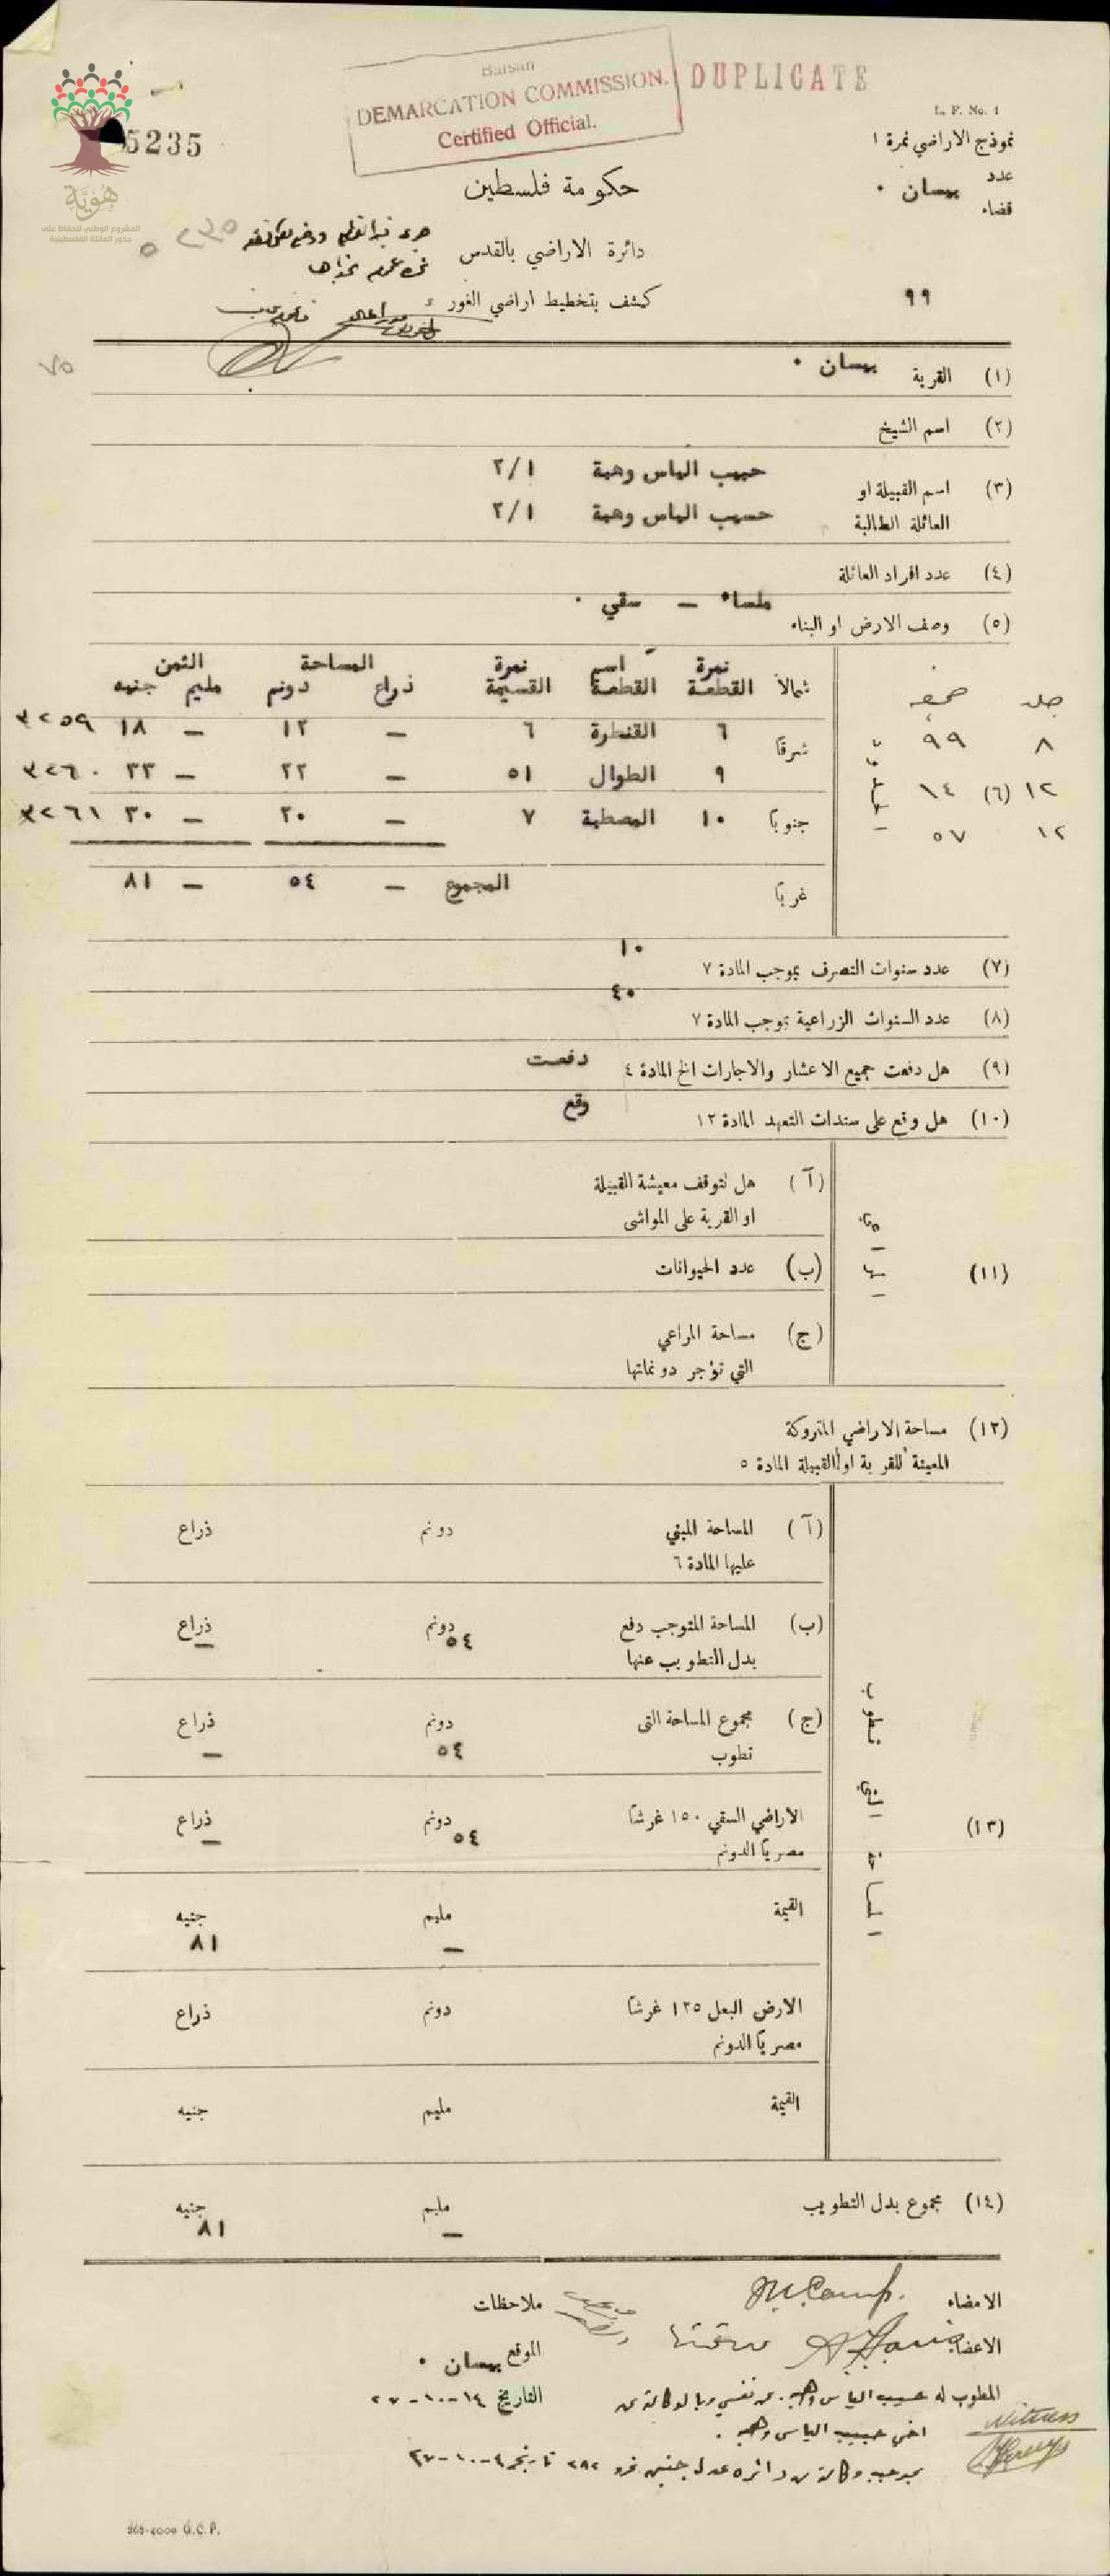 Baisan
DEMARCATION COMMISSION.
Certified Official.
DUPLICATE
L. F. No. 1
5235
نموذج الاراضي نمرة ١
عدد
قضاء بيسان .
هُويَّة
المشروع الوطني للحفاظ على
جذور العائلة الفلسطينية
حكومة فلسطين
٥٢٣٥
دائرة الاراضي بالقدس
كشف بتخطيط اراضي الغور
٩٩
٧٥
(١) القرية بيسان .
(٢) اسم الشيخ
(٣) اسم القبيلة او العائلة الطالبة
حبيب الياس وهبة ٢/١
حسيب الياس وهبة ٢/١
(٤) عدد افراد العائلة
(٥) وصف الارض او البناء ملساء — سقي .
جلد صحيفه
٨ ٩٩
١٢ ١٤
١٢ ٥٧
(٦) الحدود
شمالاً
شرقاً
جنوباً
غرباً
نمرة القطعة اسم القطعة نمرة القسيمة المساحة ذراع دونم الثمن مليم جنيه
٦ القنطرة ٦ — ١٢ — ١٨ ٣٢٥٩
٩ الطوال ٥١ — ٢٢ — ٣٣ ٣٢٦٠
١٠ المصطبة ٧ — ٢٠ — ٣٠ ٣٢٦١
المجموع — ٥٤ — ٨١
(٧) عدد سنوات التصرف بموجب المادة ٧ ١٠
(٨) عدد السنوات الزراعية بموجب المادة ٧ ٤٠
(٩) هل دفعت جميع الاعشار والاجارات الخ المادة ٤ دفعت
(١٠) هل وقع على سندات التعهد المادة ١٢ وقع
(١١)
(آ) هل تتوقف معيشة القبيلة
او القرية على المواشى
(ب) عدد الحيوانات
(ج) مساحة المراعي
التي تؤجر دونماتها
(١٢) مساحة الاراضي المتروكة
المعينة للقرية او القبيلة المادة ٥
(١٣) المساحة التي تطوب
(آ) المساحة المبني دونم ذراع
عليها المادة ٦
(ب) المساحة المتوجب دفع دونم ذراع
بدل التطويب عنها ٥٤ —
(ج) مجموع المساحة التى دونم ذراع
تطوب ٥٤ —
الاراضي السقي ١٥٠ غرشاً دونم ذراع
مصرياً الدونم ٥٤ —
القيمة مليم جنيه
— ٨١
الارض البعل ١٢٥ غرشاً دونم ذراع
مصرياً الدونم
القيمة مليم جنيه
(١٤) مجموع بدل التطويب مليم جنيه
— ٨١
الامضاء
ملاحظات
الاعضاء
الموقع بيسان .
التاريخ ١٤-١٠-٢٧
المطوب له حسيب الياس وهبه . عن نفسي وبالوكالة عن
اخي حبيب الياس وهبه .
بموجب وكالة من دائرة عدل جنين نمرو ٢٨٢ تاريخ ٤-١٠-٢٧
Witness
265-4000 G.C.P.